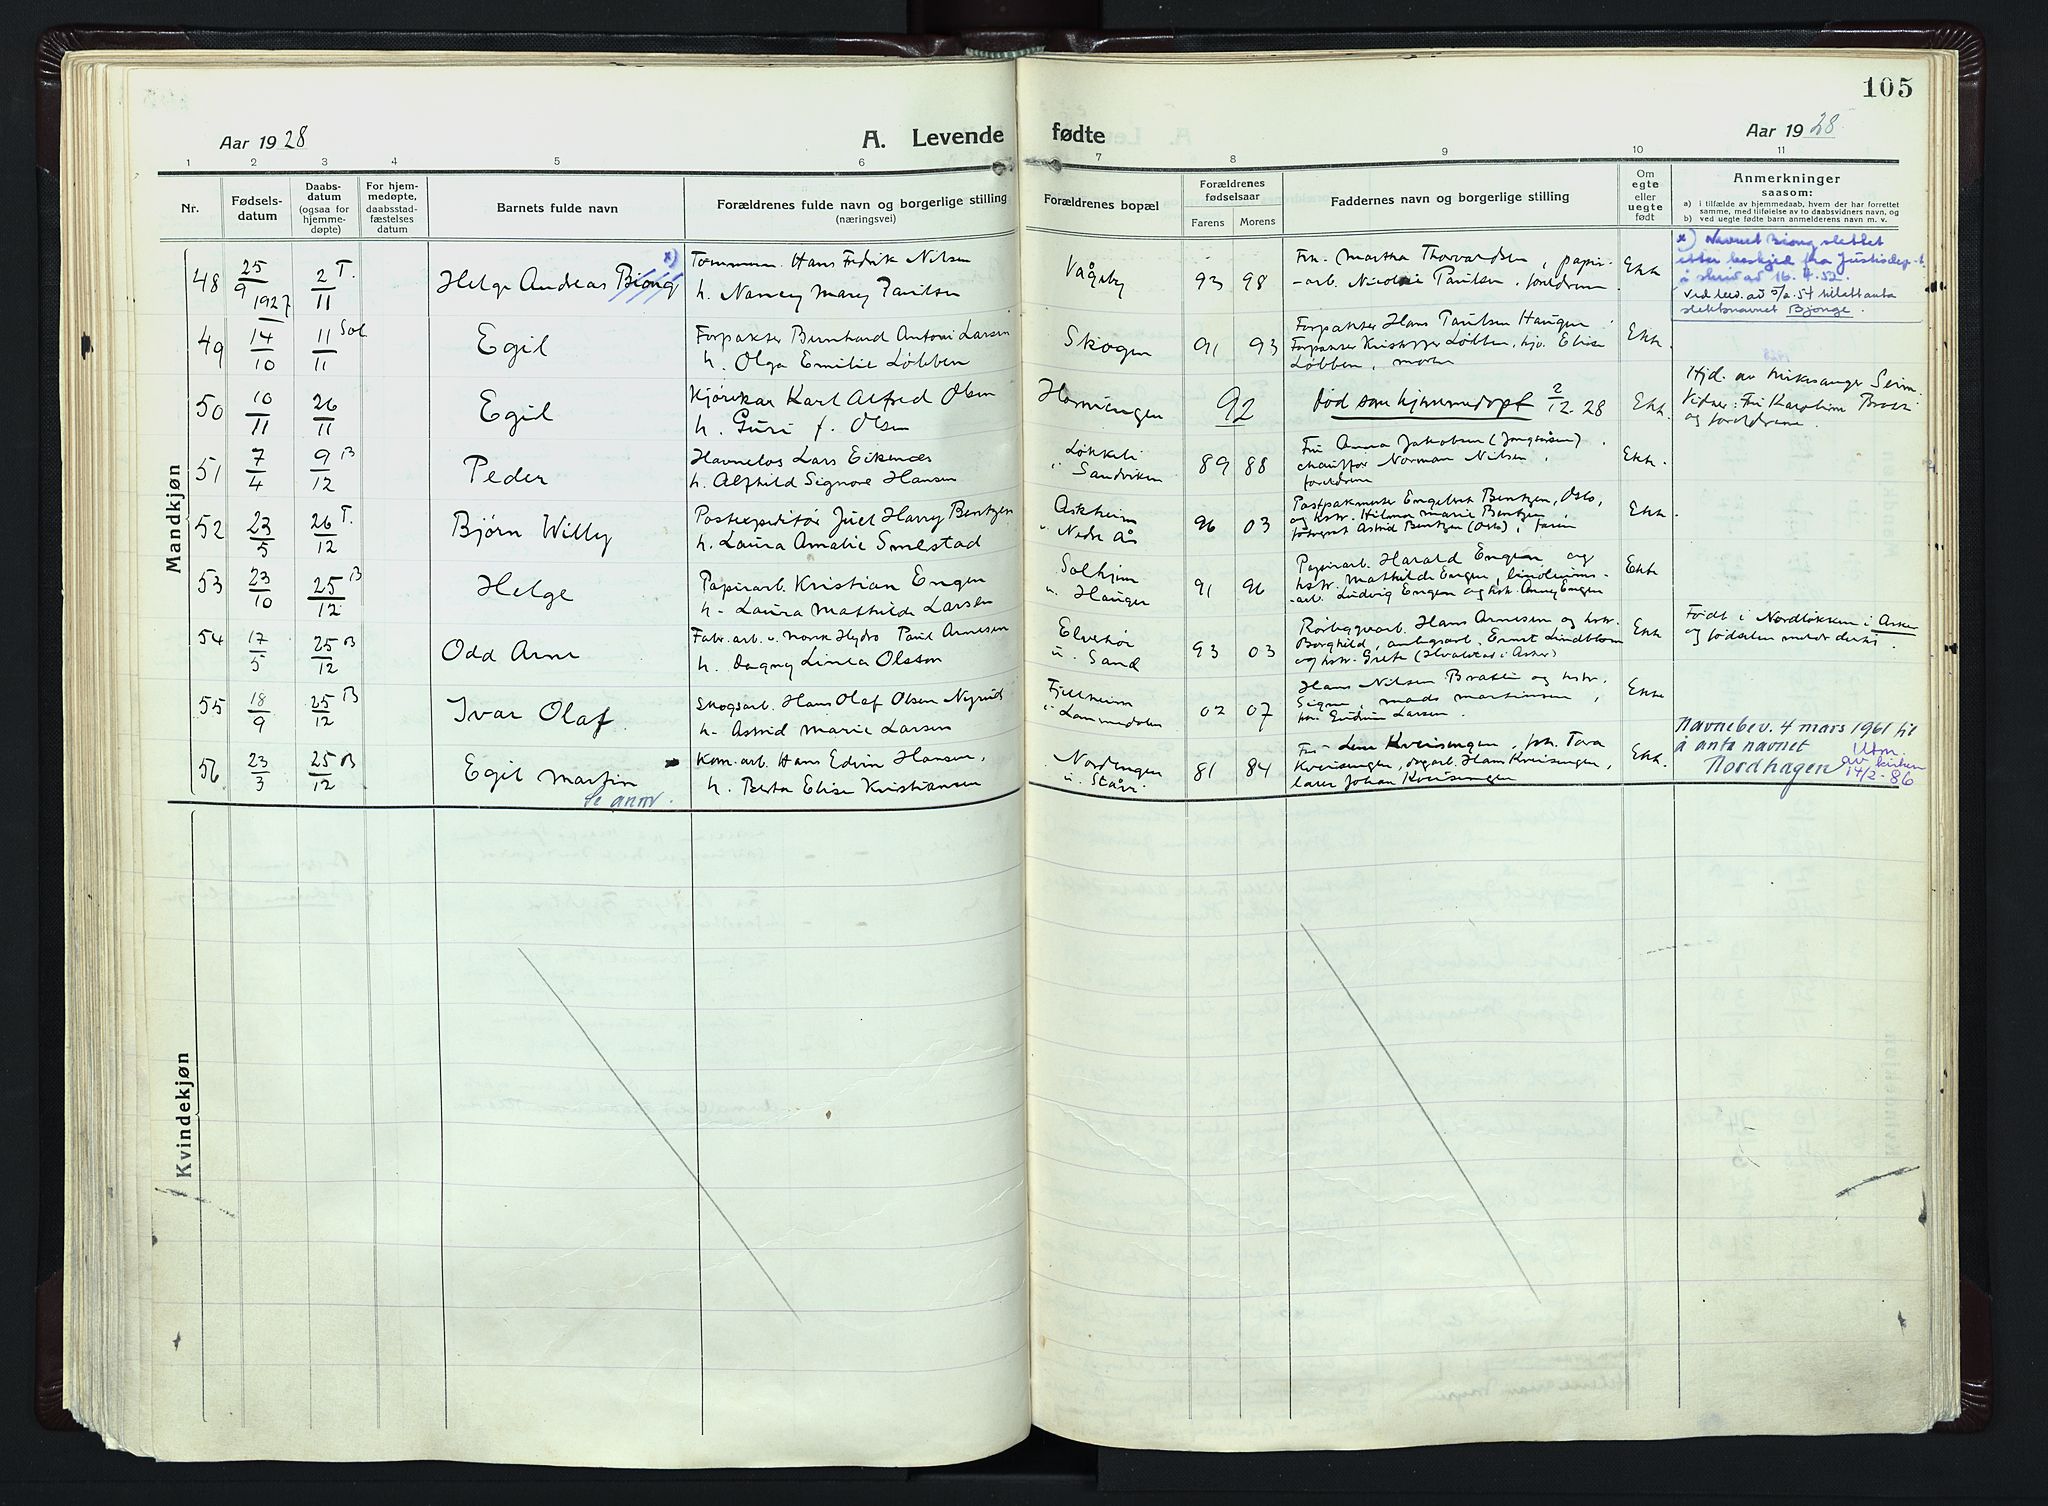 105
Aar 1928
A. Levende fødte
Aar 1928
1 2 3 4 5 6 7 8 9 10 11
Nr.
Fødsels-
datum
Daabs-
datum
(ogsaa for
hjemme-
døpte)
For hjem-
medøpte,
daabsstad-
fæstelses
datum
Barnets fulde navn
Forældrenes fulde navn og borgerlige stilling
(næringsvei)
Forældrenes bopæl
Forældrenes
fødselsaar
Farens Morens
Faddernes navn og borgerlige stilling
Om
egte
eller
uegte
født
Anmerkninger
saasom:
a) i tilfælde av hjemmedaab, hvem der har forrettet
samme, med tilføielse av to daabsvidners navn, og
b) ved uegte fødte barn anmelderens navn m. v.
Mandkjøn
48 25/9 1927 2/11 T. Helge Andreas Biong x)
Tømmerm. Hans Fredrik Nilsen
h. Nancy Mary Paulsen
Vågeby 93 98
Frk. Martha Thorvaldsen, papir-
-arb. Nicolai Paulsen, foreldrene.
Ekte
x) Navnet Biong slettet
etter beskjed fra Justisdep-t.
i skriv av 16.4.52.
Ved bev. av 5/2.54 tillatt anta
slektsnavnet Bjonge.
49 14/10 11/11 Sol Egil
Forpakter Bernhard Antoni Larsen
h. Olga Emilie Løbben
Skogen 91 93
Forpakter Hans Paulsen Haugen
Forpakter Kristoffer Løbben, hv. Elise
Løbben, moren
Ekte.
50 10/11 26/11 Egil
Kjørekar Karl Alfred Olsen
h. Guri f. Olsen
92
Død som hjemmedøpt 2/12.28
Ekte.
1928
Hjd. av kirkesanger Seim.
Vidner: Fru Karoline
og foreldrene.
51 7/4 9/12 B Peder
Havnelos Lars Eikenæs
h. Alfhild Signore Hansen
Løkkeli
i Sandviken 89 88
Fru Anna Jakobsen
chauffør Norman Nilsen,
foreldrene
Ekte.
52 23/5 26/12 T. Bjørn Willy
Postexpeditør Juel Harry Bentzen
h. Laura Amalie Smestad
Askheim
u. Nedre Ås 96 03
Postpakmester Engebret Bentzen, Oslo,
og hstr. Hilma Marie Bentzen,
Astrid Bentzen (Oslo), faren
Ekte
53 23/10 25/12 B Helge
Papirarb. Kristian Engen
h. Laura Mathilde Larsen
Solheim
u. Hauger 91 96
Papirarb. Harald Engen og
hstr. Mathilde Engen,
-arb. Ludvig Engen og hstr. Anny Engen
Ekte
54 17/5 25/12 B Odd Arne
Fabr. arb. v. Norsk Hydro Paul Arnesen
h. Dagny Linea Olsson
u. Sand 93 03
Hans Arnesen og hstr.
Borghild, anlegsarb. Ernst Lindblom
og hstr. Grete (Hvalstad i Asker)
Ekte
Født i Nordløkken i Asker
og fødselen meldt dertil.
55 18/9 25/12 B Ivar Olaf
Skogsarb. Hans Olaf Olsen Nyrud
h. Astrid Marie Larsen
Fjellheim
i Lommedalen 02 07
Hans Nilsen Brække og hstr.
Signe, Mads Martinsen,
frk. Gudrun Larsen.
Ekte
56 23/3 25/12 B Egil Martin
se anm.
Kom. arb. Hans Edvin Hansen,
h. Berta Elise Kristiansen
Nordengen
u. Stävi 81 84
Fru Lina Kveisengen, frk. Tora
Kveisengen, Hans Kveisengen,
lærer Johan Kveisengen
Ekte.
Navnebev. 4 mars 1961 til
å anta navnet
Nordhagen
Utm.
av kirken
14/2-86
Kvindekjøn